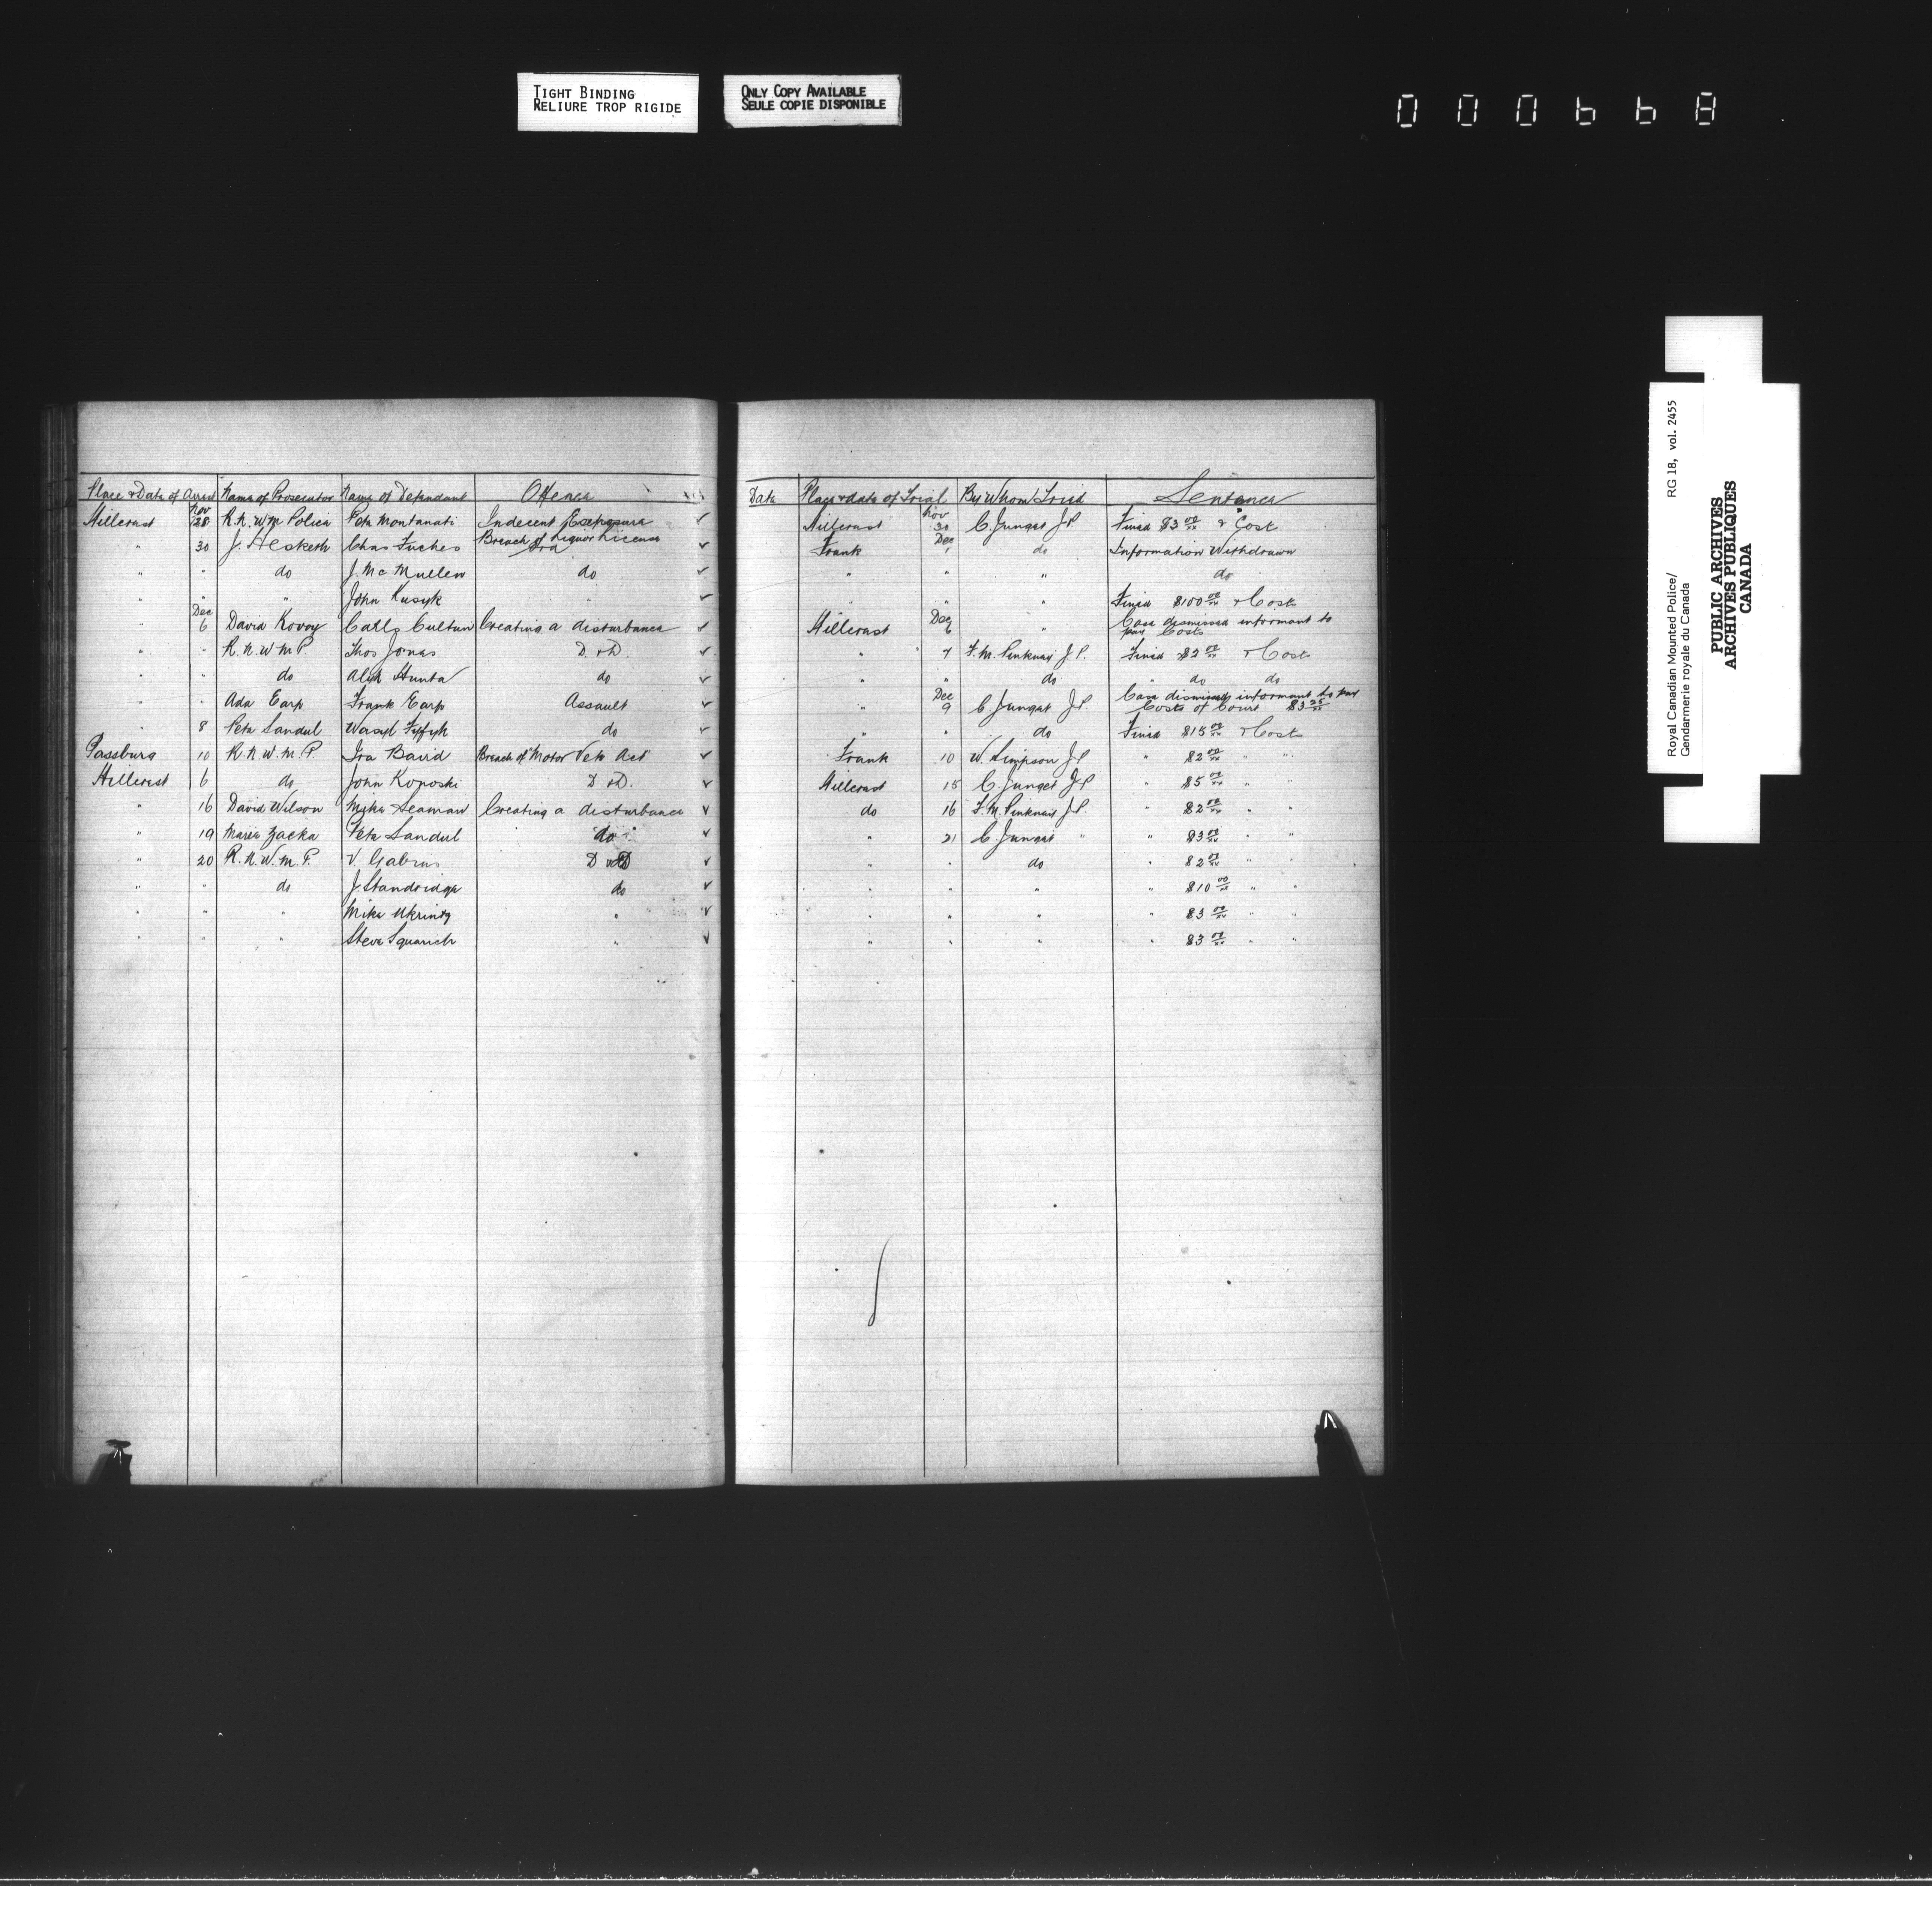 TIGHT BINDING
RELIURE TROP RIGIDE
ONLY COPY AVAILABLE
SEULE COPIE DISPONIBLE
000668
Royal Canadian Mounted Police/ RG 18, vol. 2455
Gendarmerie royale du Canada
PUBLIC ARCHIVES
ARCHIVES PUBLIQUES
CANADA
Place & Date of Arrest Name of Prosecutor Name of Defendant Offence Date Place & date of Trial By Whom Tried Sentence
Hillcrest Nov 28 R.N.W.M Police Pete Montanati Indecent Exposure ✓ Hillcrest Nov 30 C. Junget J.P. Fined $3 00/xx & Cost
" 30 J. Hesketh Chas Fuches Breach of Liquor License Ord ✓ Frank Dec 1 do Information Withdrawn
" " do J. McMullen do ✓ " " " do
" " " John Kusyk " ✓ " " " Fined $100 00/xx & Costs
" Dec 6 David Kovoy Catty Cultun Creating a disturbance ✓ Hillcrest Dec 6 " Case dismissed informant to pay Costs
" " R.N.W.M.P. Thos Jones D. & D. ✓ " 7 F.M. Pinkney J.P. Fined $2 00/xx & Cost
" " do Alex Hunta do ✓ " " do " do do
" " Ada Earp Frank Earp Assault ✓ " Dec 9 C Junget J.P. Case dismissed informant to pay Costs of Court $3 25/xx
" 8 Pete Sandul Wasyl do ✓ " " do Fined $15 00/xx & Costs
Passburg 10 R.N.W.M.P. Ira Baird Breach of "Motor Veh Act" ✓ Frank 10 W. Simpson J.P " $2 00/xx " "
Hillcrest 6 do John Koposki D & D. ✓ Hillcrest 15 C. Junget J.P " $5 00/xx " "
" 16 David Wilson Mike Seaman Creating a disturbance ✓ do 16 F.M. Pinkney J.P. " $2 00/xx " "
" 19 Marie Zacka Pete Sandul do ✓ " 21 C. Junget " " $3 00/xx " "
" 20 R.N.W.M.P. V. Gabrus D & D ✓ " " do " $2 00/xx " "
" " do J. Standridge do ✓ " " " " $10 00/xx " "
" " " Mike Ukrintz " ✓ " " " " $3 00/xx " "
" " " Steve Squarich " ✓ " " " " $3 00/xx " "